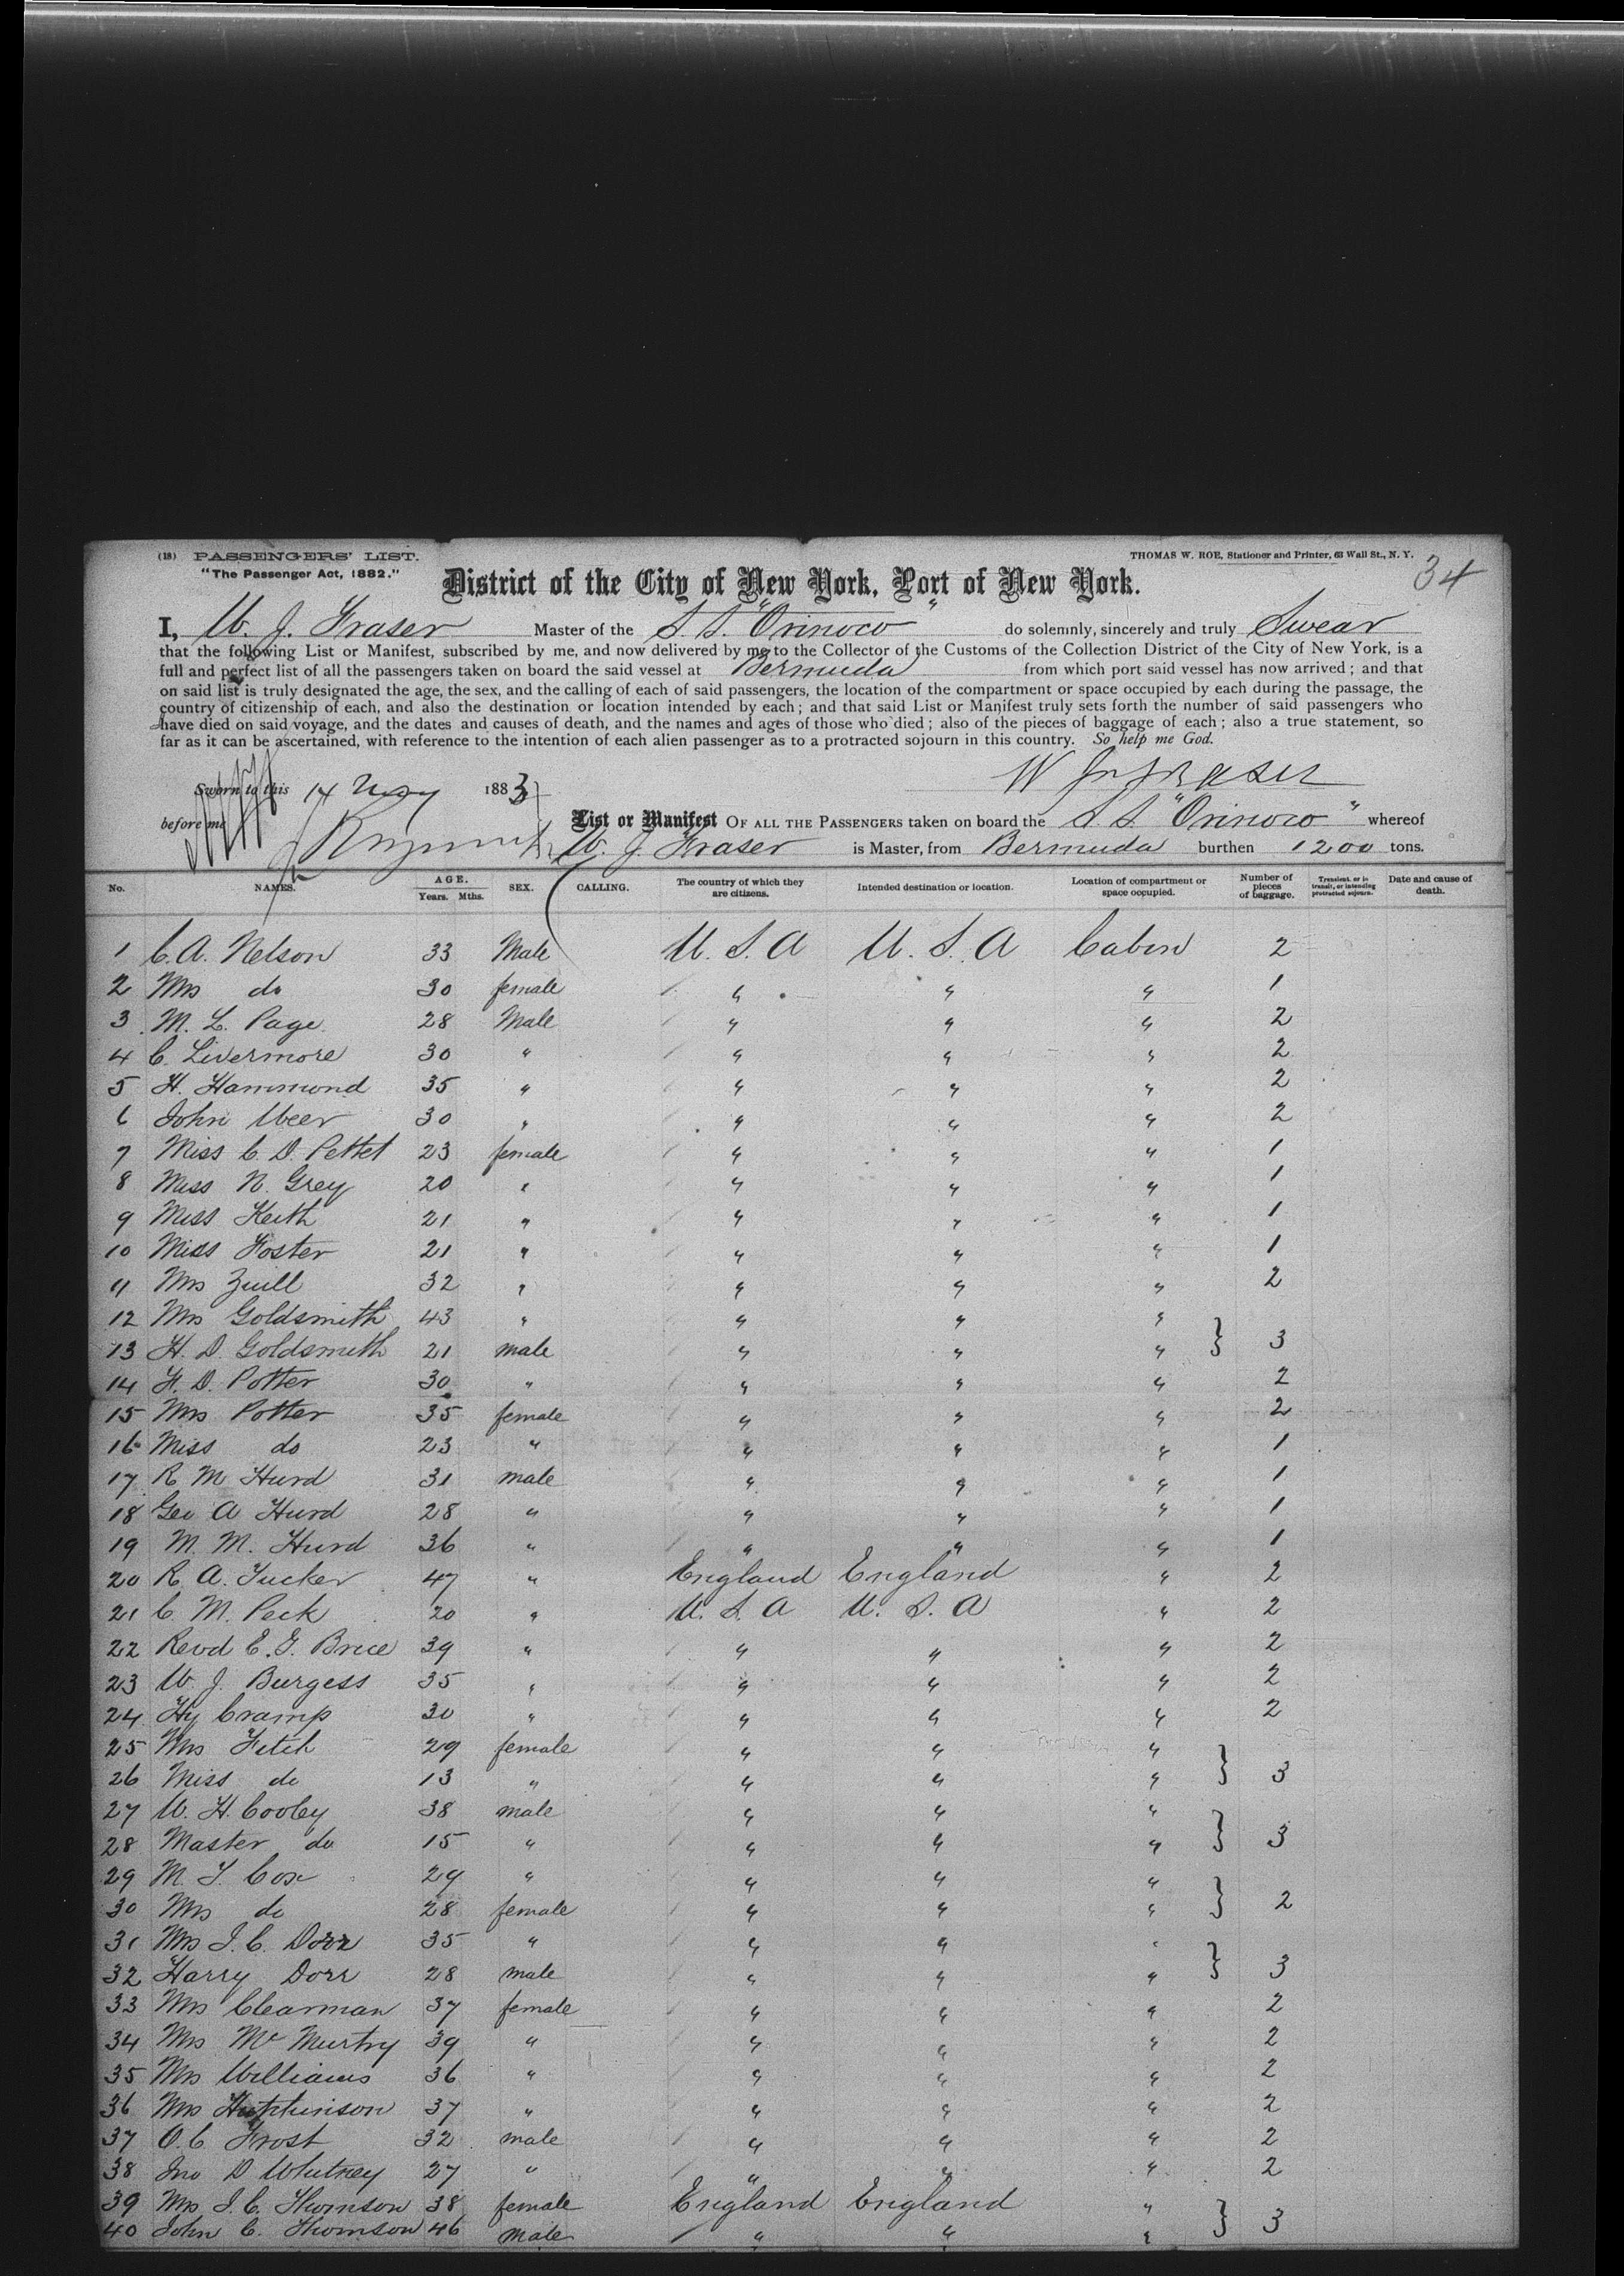 (18) PASSENGERS' LIST. THOMAS W. ROE, Stationer and Printer, 63 Wall St., N. Y.
"The Passenger Act, 1882." 34
District of the City of New York, Port of New York.
I, W. J. Fraser Master of the S. S. "Orinoco" do solemnly, sincerely and truly Swear
that the following List or Manifest, subscribed by me, and now delivered by me to the Collector of the Customs of the Collection District of the City of New York, is a
full and perfect list of all the passengers taken on board the said vessel at Bermuda from which port said vessel has now arrived; and that
on said list is truly designated the age, the sex, and the calling of each of said passengers, the location of the compartment or space occupied by each during the passage, the
country of citizenship of each, and also the destination or location intended by each; and that said List or Manifest truly sets forth the number of said passengers who
have died on said voyage, and the dates and causes of death, and the names and ages of those who died; also of the pieces of baggage of each; also a true statement, so
far as it can be ascertained, with reference to the intention of each alien passenger as to a protracted sojourn in this country. So help me God.
W J Fraser
Sworn to this 14 May 1883
before me List or Manifest OF ALL THE PASSENGERS taken on board the S. S. "Orinoco" whereof
W. J. Fraser is Master, from Bermuda burthen 1200 tons.
No. NAMES. AGE. Years. Mths. SEX. CALLING. The country of which they are citizens. Intended destination or location. Location of compartment or space occupied. Number of pieces of baggage. Transient, or in transit, or intending protracted sojourn. Date and cause of death.
1 C. A. Nelson 33 Male U. S. A U. S. A Cabin 2
2 Mrs do 30 female " " " 1
3 M. L. Page 28 Male " " " 2
4 C. Livermore 30 " " " " 2
5 H. Hammond 35 " " " " 2
6 John 30 " " " " 2
7 Miss C. D. Pettet 23 female " " " 1
8 Miss N. Grey 20 " " " " 1
9 Miss Keith 21 " " " " 1
10 Miss Foster 21 " " " " 1
11 Mrs Zuill 32 " " " " 2
12 Mrs Goldsmith 43 " " " "
13 H. D. Goldsmith 21 male " " " } 3
14 F. D. Potter 30 " " " " 2
15 Mrs Potter 35 female " " " 2
16 Miss do 23 " " " " 1
17 R M Hurd 31 male " " " 1
18 Geo A Hurd 28 " " " " 1
19 M. M. Hurd 36 " " " " 1
20 R. A. Tucker 47 " England England " 2
21 C. M. Peck 20 " U. S. A U. S. A " 2
22 Revd E. G. Brice 39 " " " " 2
23 W. J. Burgess 35 " " " " 2
24 Hy Cramp 30 " " " " 2
25 Mrs Fitch 29 female " " "
26 Miss do 13 " " " " } 3
27 W. H. Cooley 38 male " " "
28 Master do 15 " " " " } 3
29 M. T. Cox 29 " " " "
30 Mrs do 28 female " " " } 2
31 Mrs J. C. Dorr 35 " " " "
32 Harry Dorr 28 male " " " } 3
33 Mrs Clearman 37 female " " " 2
34 Mrs McMurtry 39 " " " " 2
35 Mrs Williams 36 " " " " 2
36 Mrs Hutchinson 37 " " " " 2
37 O. C Frost 32 male " " " 2
38 Jno D Whitney 27 " " " " 2
39 Mrs J. C. Thomson 38 female England England "
40 John C. Thomson 46 male " " " } 3